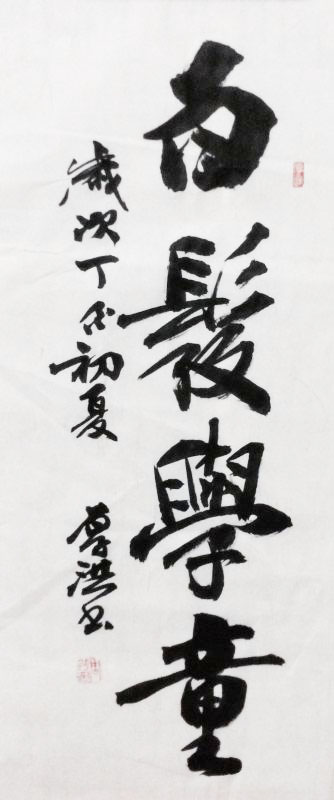 白髮學童
歲次丁酉初夏
洪書